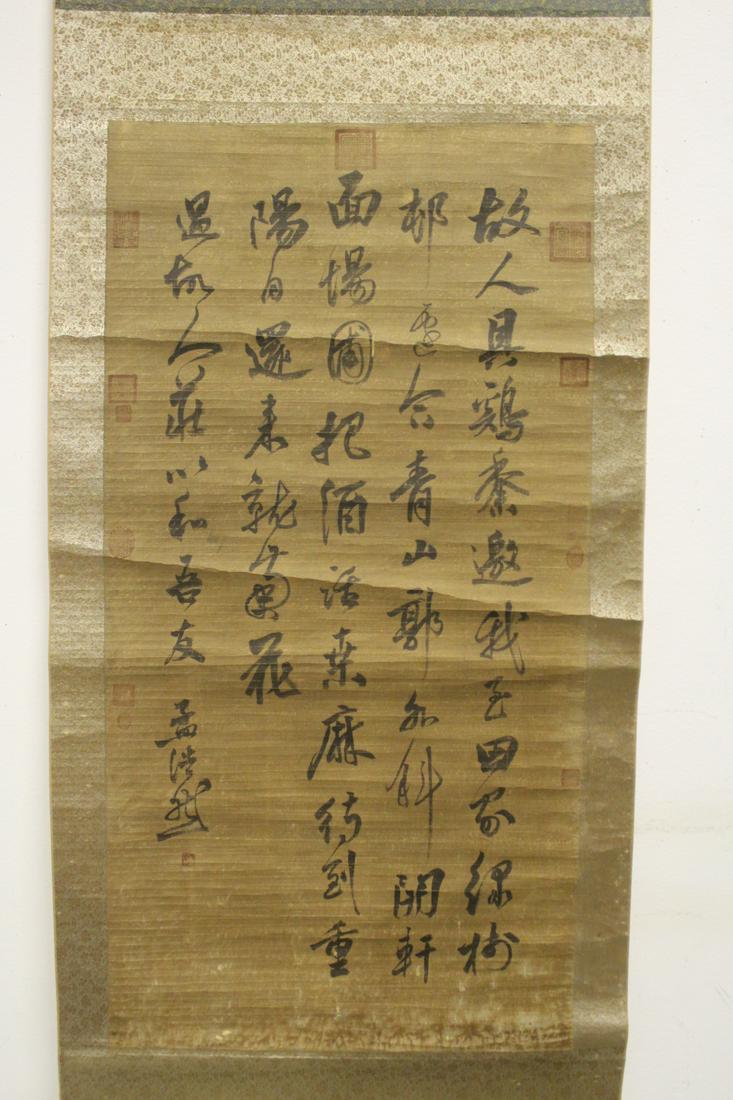 故人具鷄黍邀我至田家綠樹
邨邊合青山郭外斜開軒
面場圃把酒話桑麻待到重
陽日還来就菊花
過故人莊以和吾友 孟浩然